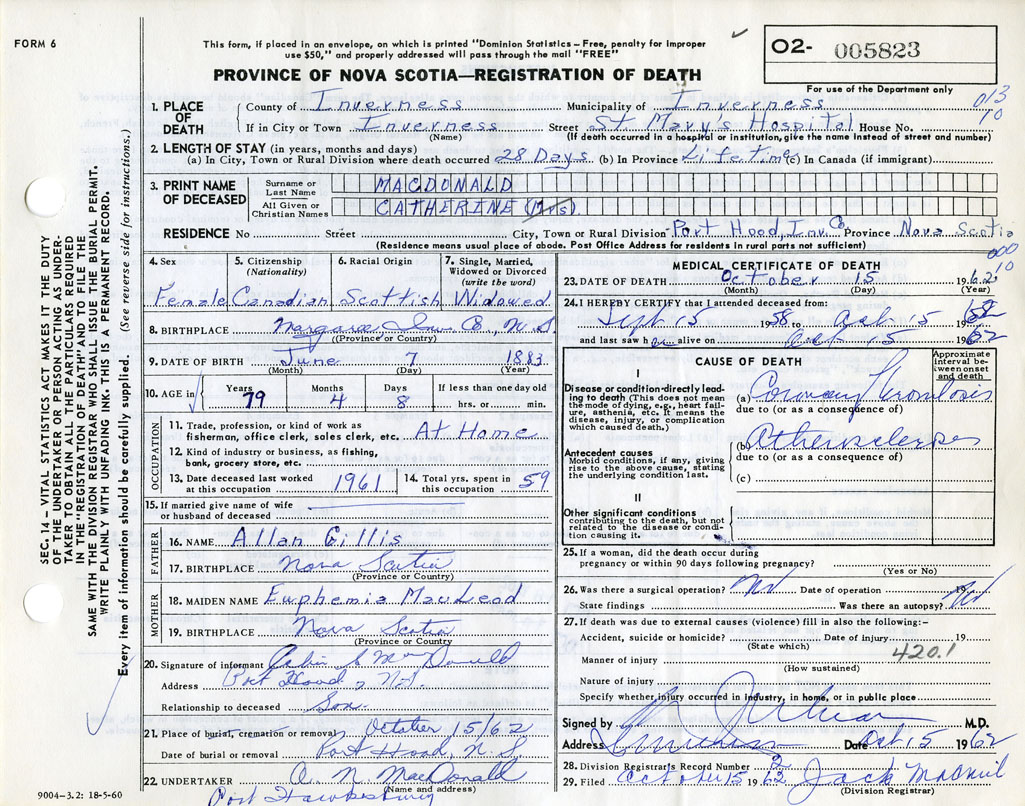 FORM 6
This form, if placed in an envelope, on which is printed "Dominion Statistics – Free, penalty for improper
use $50," and properly addressed will pass through the mail "FREE"
PROVINCE OF NOVA SCOTIA—REGISTRATION OF DEATH
O2- 005823
For use of the Department only
013
10
1. PLACE OF DEATH
County of Inverness Municipality of Inverness
If in City or Town Inverness Street St Mary's Hospital House No.
(Name) (If death occurred in a hospital or institution, give the name instead of street and number)
2. LENGTH OF STAY (in years, months and days)
(a) In City, Town or Rural Division where death occurred 28 Days (b) In Province Life time (c) In Canada (if immigrant)
3. PRINT NAME OF DECEASED
Surname or Last Name MACDONALD
All Given or Christian Names CATHERINE (Mrs)
RESIDENCE No Street City, Town or Rural Division Port Hood, Inv Co Province Nova Scotia
(Residence means usual place of abode. Post Office Address for residents in rural parts not sufficient)
000
10
4. Sex
5. Citizenship (Nationality)
6. Racial Origin
7. Single, Married, Widowed or Divorced (write the word)
Female Canadian Scottish Widowed
8. BIRTHPLACE Margaree Inv Co, N.S.
(Province or Country)
9. DATE OF BIRTH June 7 1883
(Month) (Day) (Year)
10. AGE in
Years Months Days If less than one day old
79 4 8 hrs. or min.
OCCUPATION
11. Trade, profession, or kind of work as fisherman, office clerk, sales clerk, etc. At Home
12. Kind of industry or business, as fishing, bank, grocery store, etc.
13. Date deceased last worked at this occupation 1961
14. Total yrs. spent in this occupation 59
15. If married give name of wife or husband of deceased
FATHER
16. NAME Allan Gillis
17. BIRTHPLACE Nova Scotia
(Province or Country)
MOTHER
18. MAIDEN NAME Euphemia MacLeod
19. BIRTHPLACE Nova Scotia
(Province or Country)
20. Signature of informant
Address Port Hood, N.S.
Relationship to deceased Son.
21. Place of burial, cremation or removal October 15/62
Date of burial or removal Port Hood, N.S.
22. UNDERTAKER A. N. MacDonald
(Name and address)
Port Hawkesbury
9004-3.2: 18-5-60
MEDICAL CERTIFICATE OF DEATH
23. DATE OF DEATH October 15 1962
(Month) (Day) (Year)
24. I HEREBY CERTIFY that I attended deceased from:
Sept 15 1958 to Oct 15 1962
and last saw her alive on Oct 15 1962
CAUSE OF DEATH
Approximate interval between onset and death
I
Disease or condition directly leading to death (This does not mean the mode of dying, e.g., heart failure, asthenia, etc. It means the disease, injury, or complication which caused death.)
(a) Coronary Thrombosis
due to (or as a consequence of)
Antecedent causes
Morbid conditions, if any, giving rise to the above cause, stating the underlying condition last.
(b) Atherosclerosis
due to (or as a consequence of)
(c)
II
Other significant conditions
contributing to the death, but not related to the disease or condition causing it.
25. If a woman, did the death occur during pregnancy or within 90 days following pregnancy?
(Yes or No)
26. Was there a surgical operation? No Date of operation 19
State findings Was there an autopsy? No
27. If death was due to external causes (violence) fill in also the following:-
Accident, suicide or homicide? Date of injury 19
(State which)
420.1
Manner of injury
(How sustained)
Nature of injury
Specify whether injury occurred in industry, in home, or in public place
Signed by M.D.
Address Inverness Date Oct 15 1962
28. Division Registrar's Record Number 2
29. Filed October 15 1962 Jack MacNeil
(Division Registrar)
SEC. 14 – VITAL STATISTICS ACT MAKES IT THE DUTY
OF THE UNDERTAKER OR PERSON ACTING AS UNDER-
TAKER TO OBTAIN ALL THE PARTICULARS REQUIRED
IN THE "REGISTRATION OF DEATH" AND TO FILE THE
SAME WITH THE DIVISION REGISTRAR WHO SHALL ISSUE THE BURIAL PERMIT.
WRITE PLAINLY WITH UNFADING INK. THIS IS A PERMANENT RECORD.
Every item of information should be carefully supplied. (See reverse side for instructions.)